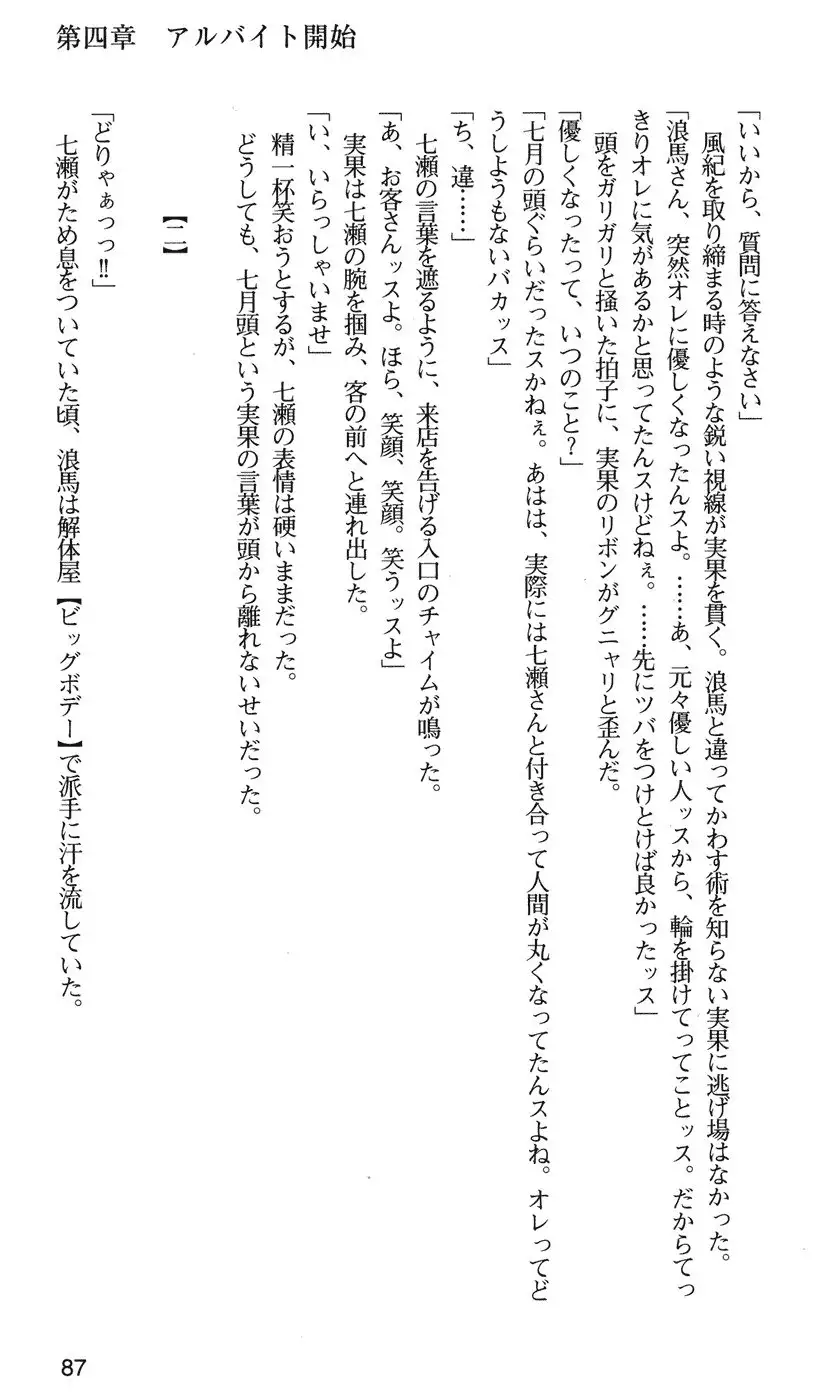 第四章　アルバイト開始
「いいから、質問に答えなさい」
　風紀を取り締まる時のような鋭い視線が実果を貫く。浪馬と違ってかわす術を知らない実果に逃げ場はなかった。
「浪馬さん、突然オレに優しくなったんスよ。……あ、元々優しい人ッスから、輪を掛けてってことッス。だからてっ
きりオレに気があるかと思ってたんスけどねぇ。……先にツバをつけとけば良かったッス」
　頭をガリガリと掻いた拍子に、実果のリボンがグニャリと歪んだ。
「優しくなったって、いつのこと？」
「七月の頭ぐらいだったスかねぇ。あはは、実際には七瀬さんと付き合って人間が丸くなってたんスよね。オレってど
うしようもないバカッス」
「ち、違……」
　七瀬の言葉を遮るように、来店を告げる入口のチャイムが鳴った。
「あ、お客さんッスよ。ほら、笑顔、笑顔。笑うッスよ」
　実果は七瀬の腕を掴み、客の前へと連れ出した。
「い、いらっしゃいませ」
　精一杯笑おうとするが、七瀬の表情は硬いままだった。
　どうしても、七月頭という実果の言葉が頭から離れないせいだった。
【二】
「どりゃぁっっ‼」
　七瀬がため息をついていた頃、浪馬は解体屋【ビッグボデー】で派手に汗を流していた。
87